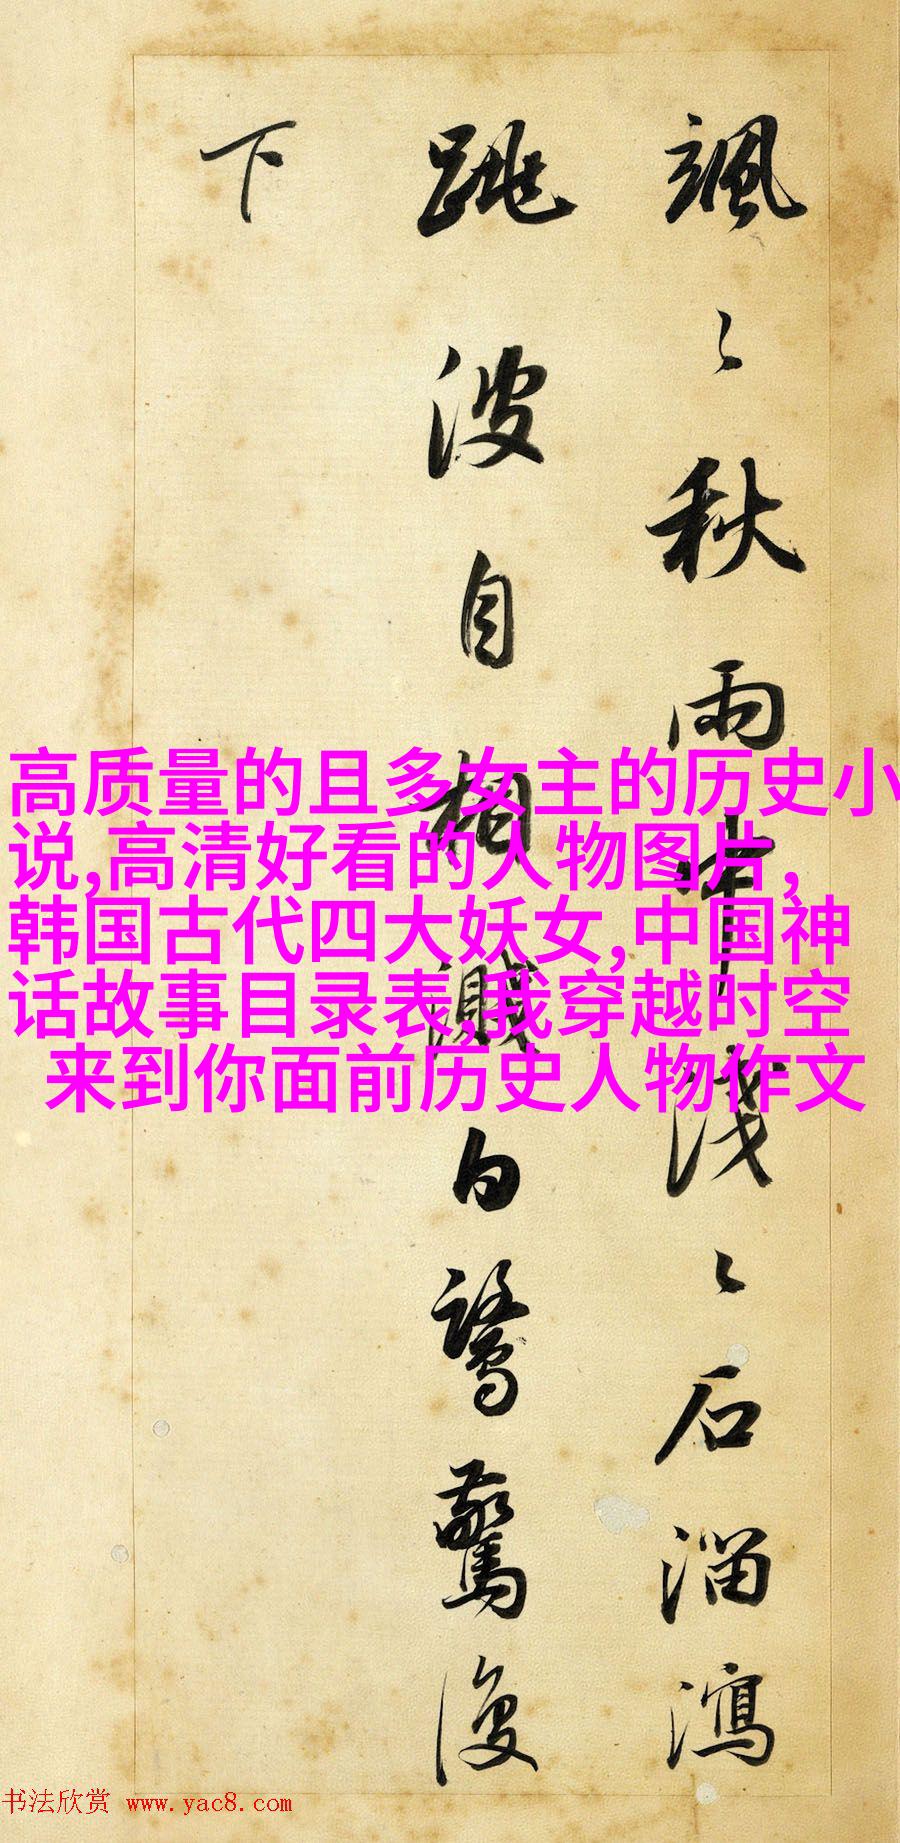 飒〻秋雨中浅〻石溜泻
跳波自相溅白鹭惊复
下
高质量的且多女主的历史小
说,高清好看的人物图片,
韩国古代四大妖女,中国神
话故事目录表,我穿越时空
来到你面前历史人物作文
书法欣赏 www.yac8.com